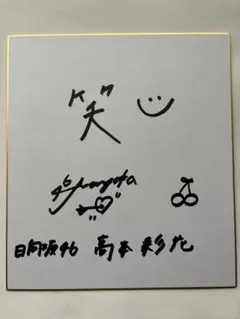 笑
日向坂46 高本彩花